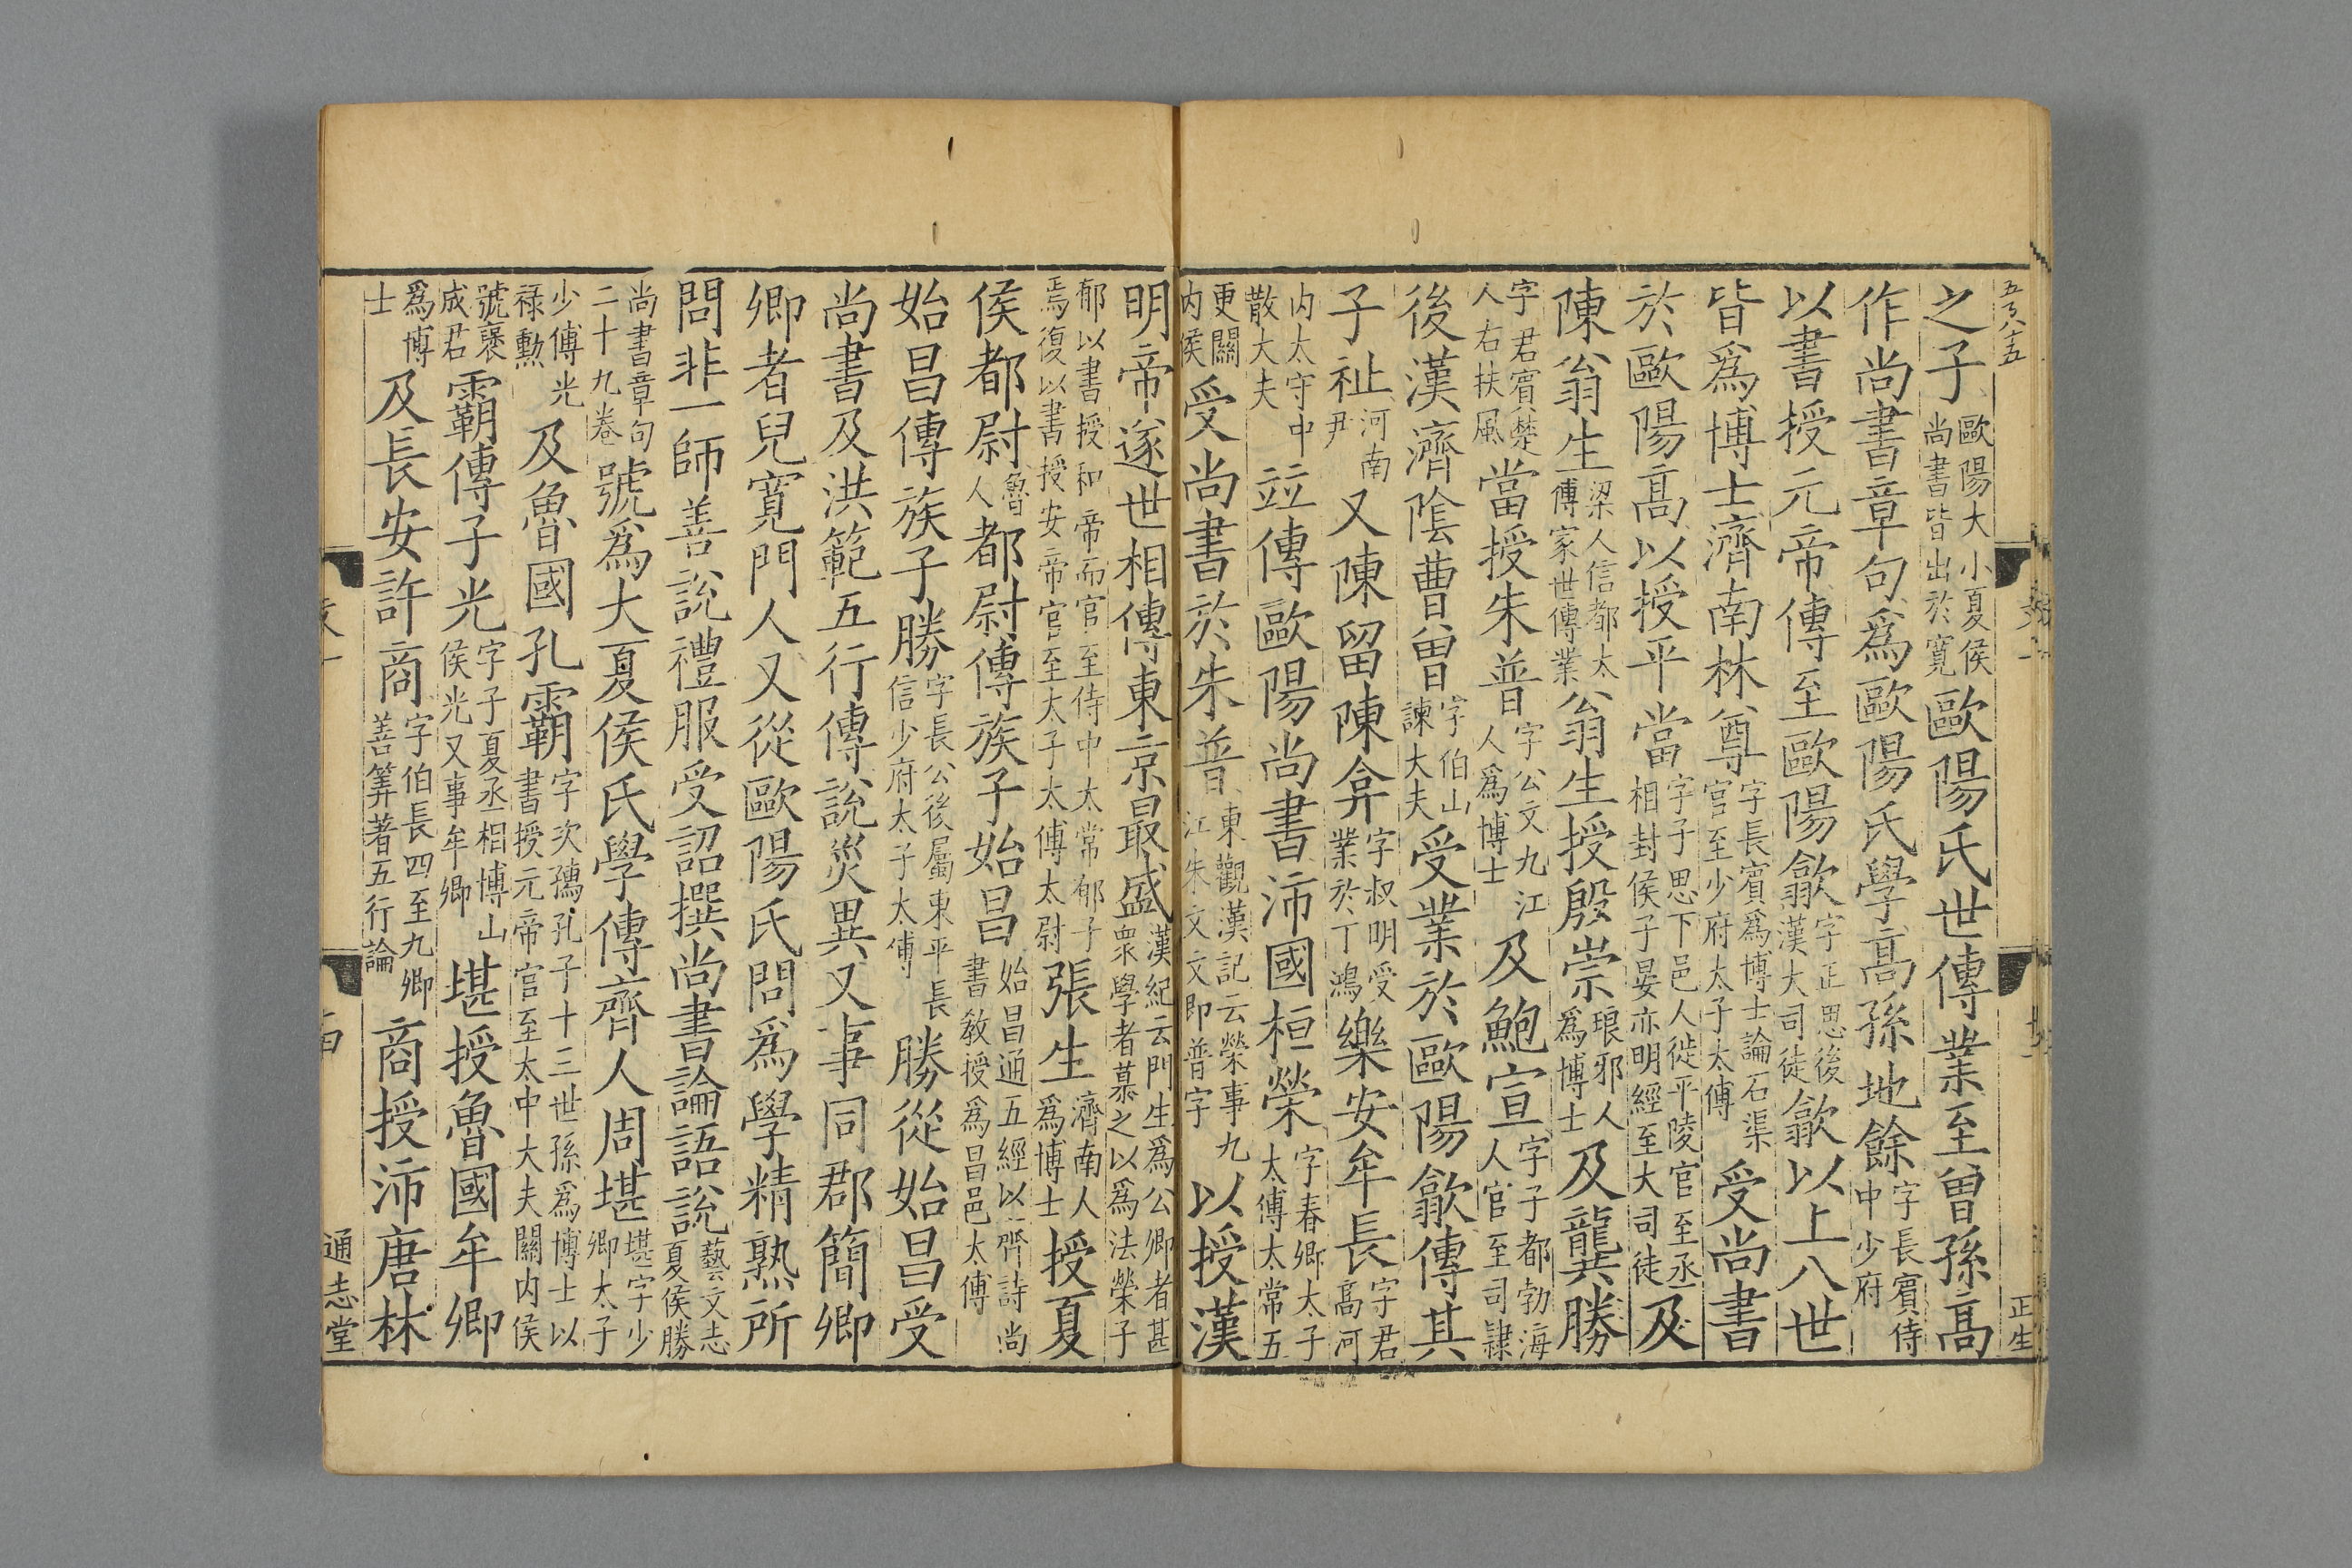 五百八十五
之子歐陽大小夏侯尚書皆出於寬歐陽氏世傳業至曾孫高
作尚書章句爲歐陽氏學高孫地餘字長賓侍中少府
以書授元帝傳至歐陽歙字正思後漢大司徒歙以上八世
皆爲博士濟南林尊字長賓爲博士論石渠官至少府太子太傅受尚書
於歐陽高以授平當字子思下邑人徙平陵官至丞相封侯子晏亦明經至大司徒及
陳翁生梁人信都太傅家世傳業翁生授殷崇琅邪人爲博士及龔勝
字君賓楚人右扶風當授朱普字公文九江人爲博士及鮑宣字子都勃海人官至司隸
後漢濟陰曹曾字伯山諫大夫受業於歐陽歙傳其
子祉河南尹又陳留陳弇字叔明受業於丁鴻樂安牟長字君高河
内太守中散大夫竝傳歐陽尚書沛國桓榮字春卿太子太傅太常五
更關内侯受尚書於朱普東觀漢記云榮事九江朱文文即普字以授漢
正生
明帝遂世相傳東京最盛漢紀云門生爲公卿者甚衆學者慕之以爲法榮子
郁以書授和帝而官至侍中太常郁子焉復以書授安帝官至太子太傅太尉張生濟南人爲博士授夏
侯都尉魯人都尉傳族子始昌始昌通五經以齊詩尚書教授爲昌邑太傅
始昌傳族子勝字長公後屬東平長信少府太子太傅勝從始昌受
尚書及洪範五行傳說災異又事同郡簡卿
卿者兒寬門人又從歐陽氏問爲學精熟所
問非一師善說禮服受詔撰尚書論語說藝文志夏侯勝
尚書章句二十九卷號爲大夏侯氏學傳齊人周堪堪字少卿太子
少傅光祿勲及魯國孔霸字次孺孔子十三世孫爲博士以書授元帝官至太中大夫關内侯
號襃成君霸傳子光字子夏丞相博山侯光又事牟卿堪授魯國牟卿
爲博士及長安許商字伯長四至九卿善筭著五行論商授沛唐林
通志堂